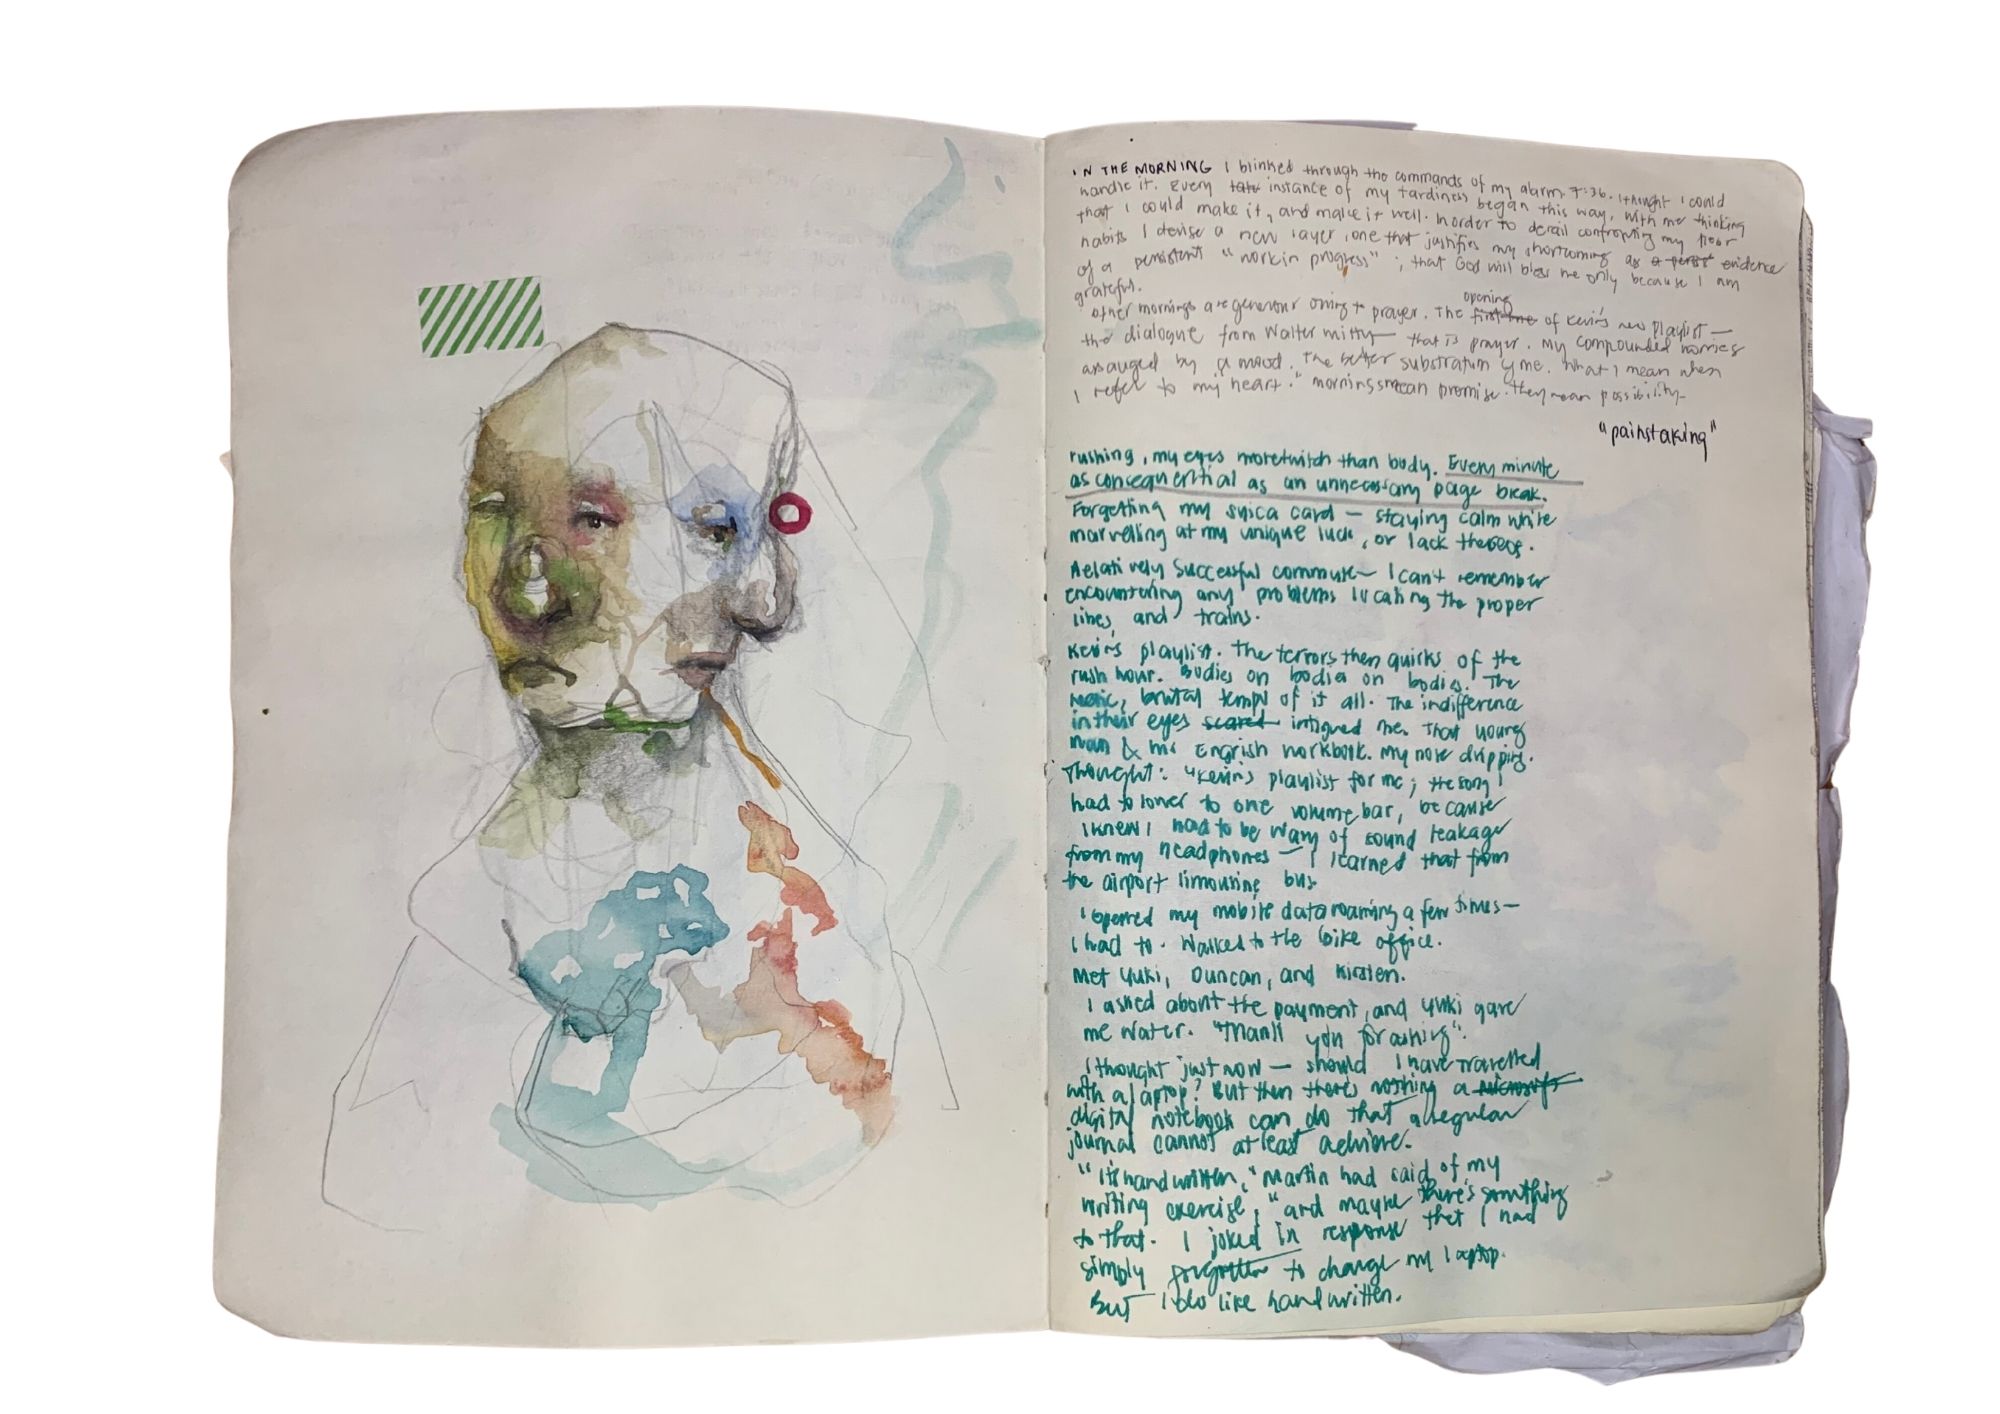 IN THE MORNING I blinked through the commands of my alarm. 7:36. I thought I could
handle it. Every instance of my tardiness began this way, with me thinking
that I could make it, and make it well. In order to derail confronting my poor
habits I devise a new layer, one that justifies my shortcoming as evidence
of a persistent "work in progress"; that God will bless me only because I am
grateful.
Other mornings are generous owing to prayer. The opening of Kevin's new playlist —
the dialogue from Walter Mitty — that is prayer. My compounded worries
arranged by a mood. The better substratum of me. What I mean when
I refer to my heart." Mornings mean promise. They mean possibility —
"painstaking"
rushing, my eyes more twitch than body. Every minute
as consequential as an unnecessary page break.
Forgetting my suica card — staying calm while
marvelling at my unique luck, or lack thereof.
Relatively successful commute — I can't remember
encountering any problems locating the proper
lines, and trains.
Kevin's playlist. The terrors then quirks of the
rush hour. Bodies on bodies on bodies. The
manic, brutal tempo of it all. The indifference
in their eyes scared intrigued me. That young
man & his English workbook. My nose dripping.
Thought: "Kevin's playlist for me; the song I
had to lower to one volume bar, because
I knew I had to be wary of sound leakage
from my headphones — I learned that from
the airport limousine bus.
I opened my mobile data roaming a few times —
I had to. Walked to the bike office.
Met Yuki, Duncan, and
I asked about the payment, and Yuki gave
me water. "Thank you for asking".
I thought just now — should I have travelled
with a laptop? But then there's nothing a
digital notebook can do that a regular
journal cannot at least achieve.
"It's handwritten," Martin had said of my
writing exercise, "and maybe there's something
to that. I joked in response that I had
simply forgotten to charge my laptop.
But I do like handwritten.